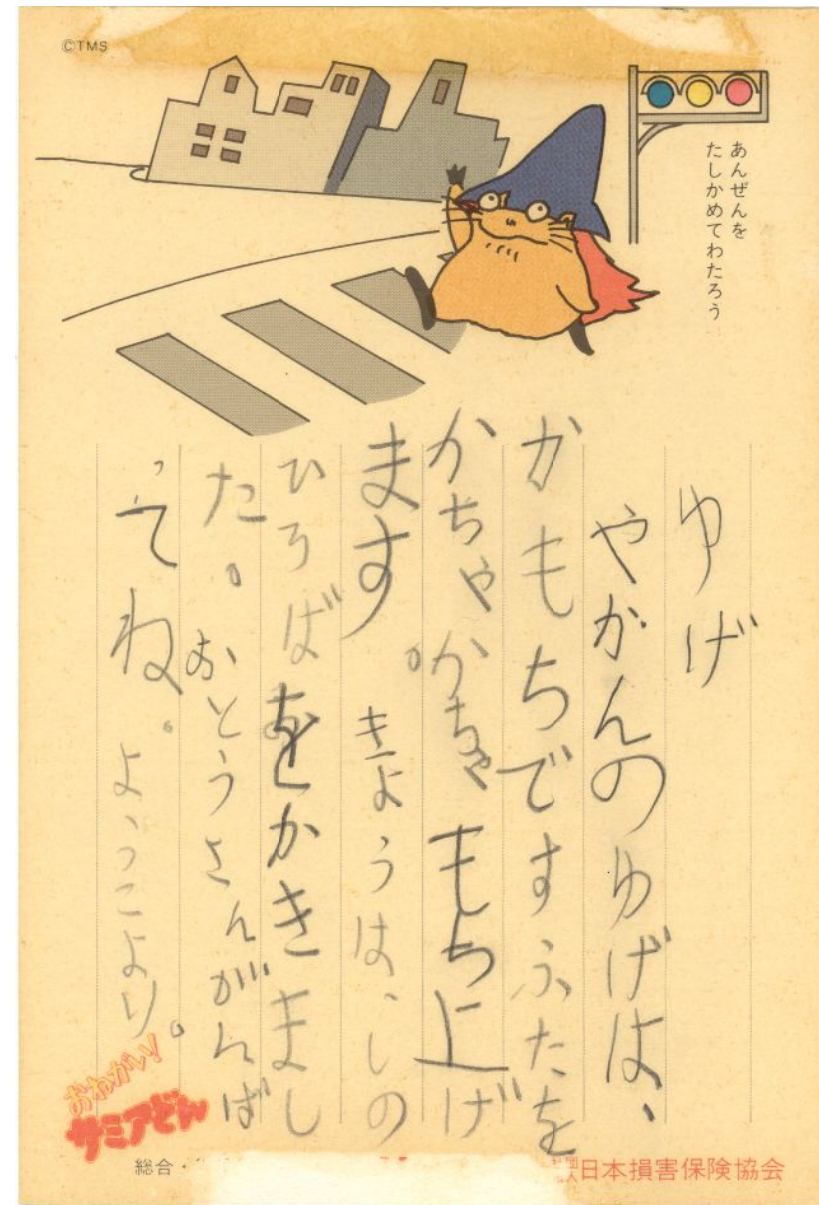 ©TMS
あんぜんを
たしかめてわたろう
ゆげ
やかんのゆげは、
かもちですふたを
かちゃかちゃもち上げ
ます。きょうは、しの
ひろばをかきまし
た。おとうさんがんば
ってね。ようこより。
おねがい!
サミアどん
総合・
日本損害保険協会